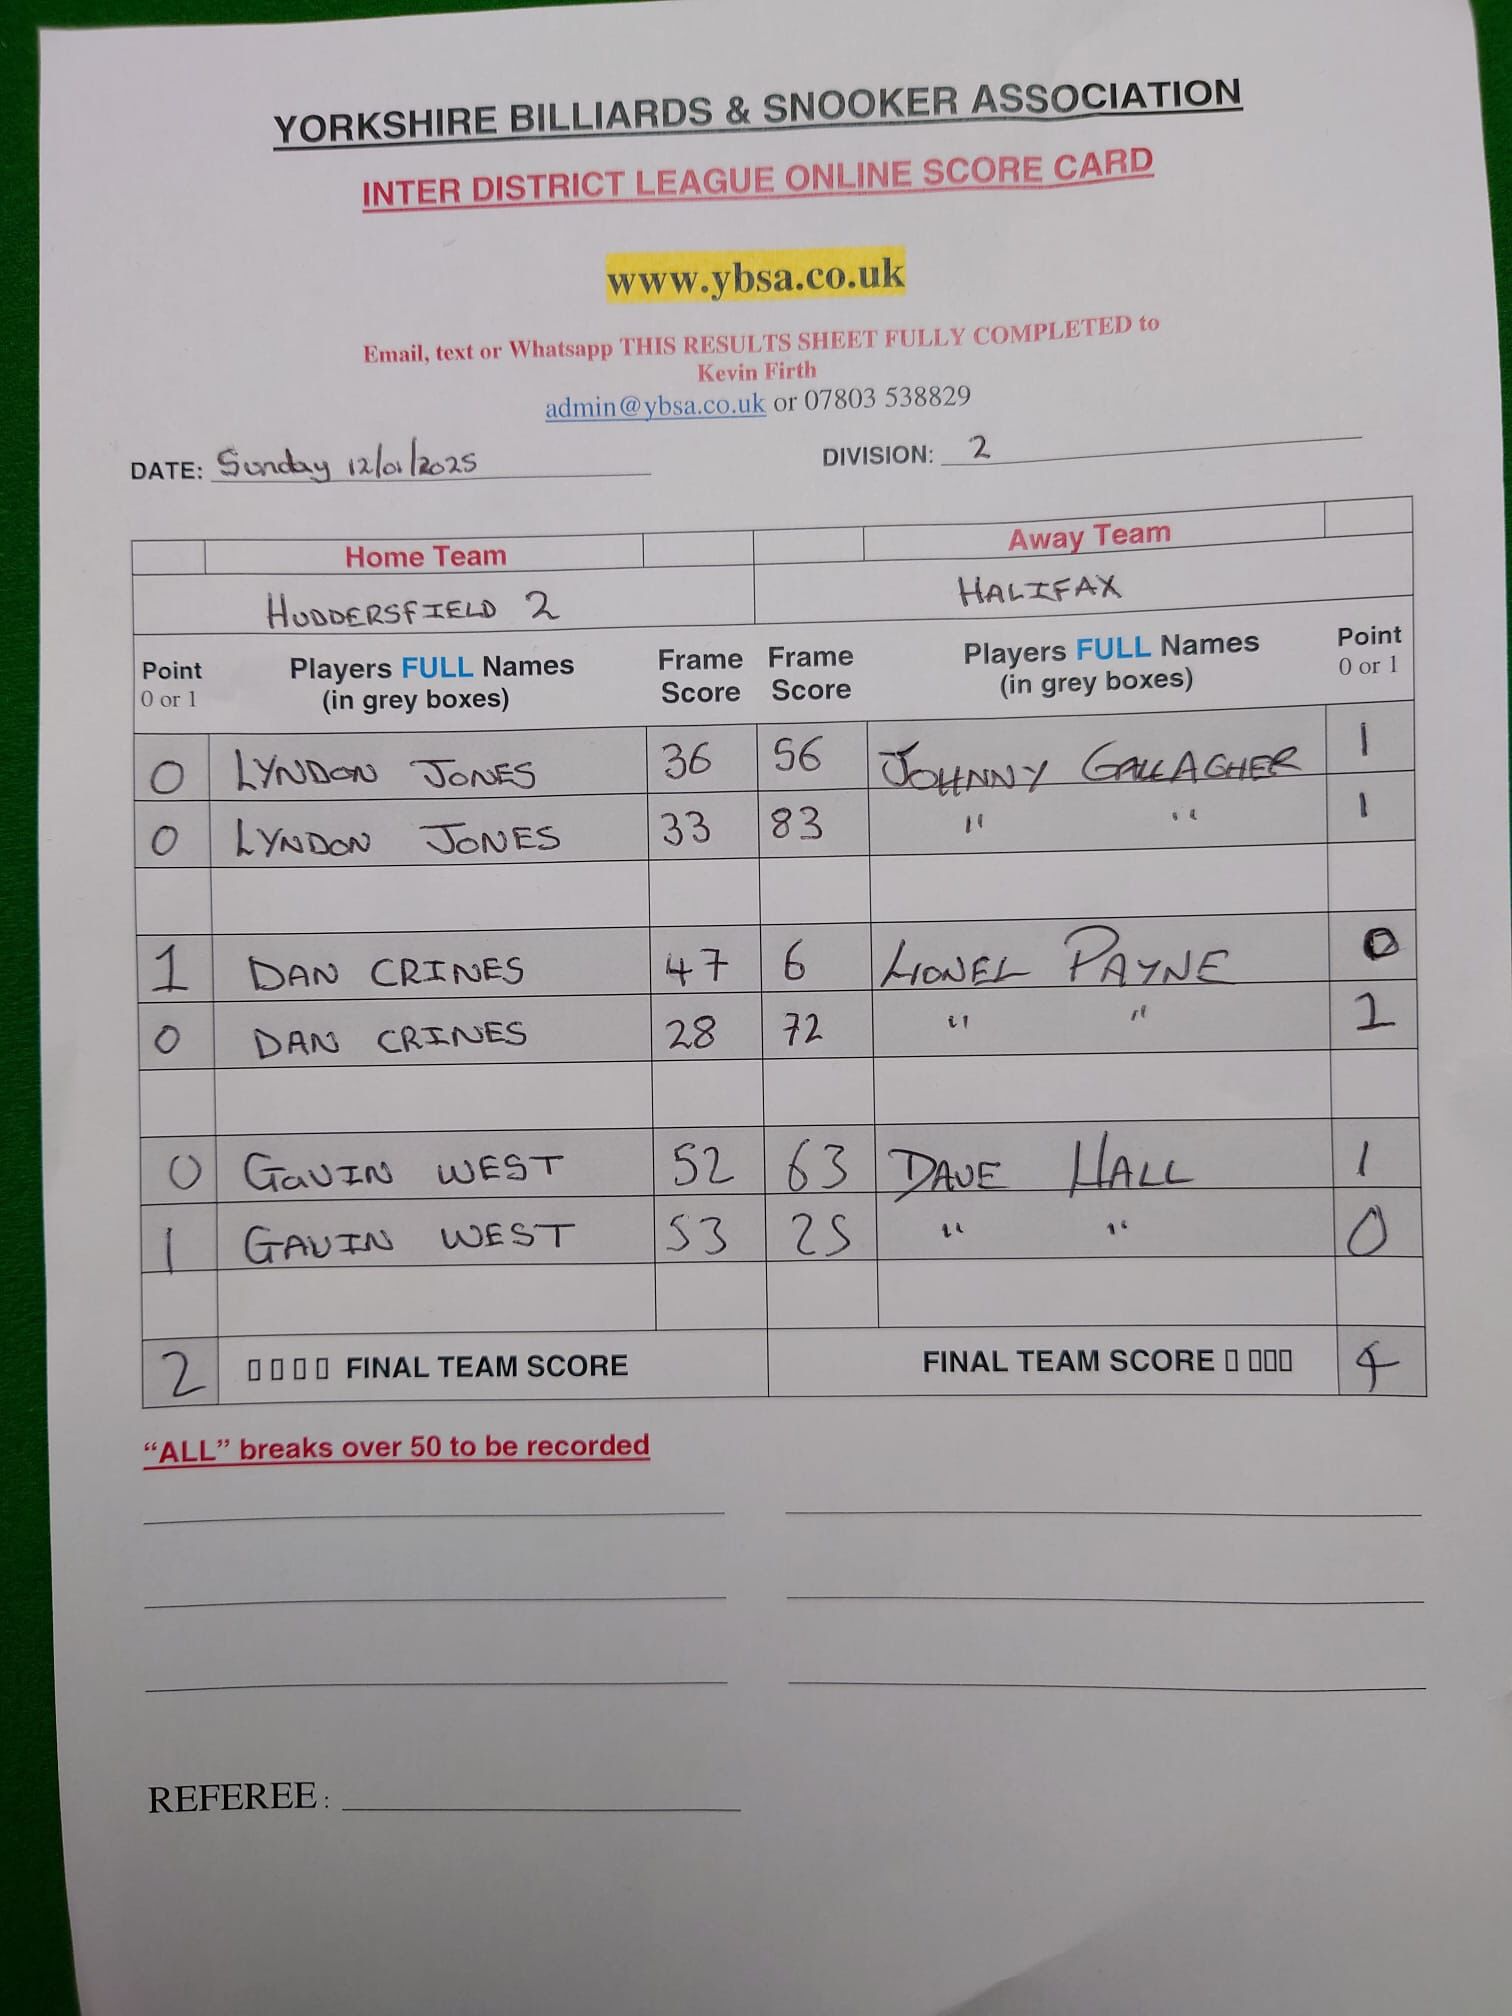 YORKSHIRE BILLIARDS & SNOOKER ASSOCIATION
INTER DISTRICT LEAGUE ONLINE SCORE CARD
www.ybsa.co.uk
Email, text or Whatsapp THIS RESULTS SHEET FULLY COMPLETED to
Kevin Firth
admin@ybsa.co.uk or 07803 538829
DATE: Sunday 12/01/2025 DIVISION: 2
Home Team Away Team
HUDDERSFIELD 2 HALIFAX
Point 0 or 1 Players FULL Names (in grey boxes) Frame Score Frame Score Players FULL Names (in grey boxes) Point 0 or 1
0 LYNDON JONES 36 56 JOHNNY GALLAGHER 1
0 LYNDON JONES 33 83 " " 1
1 DAN CRINES 47 6 LIONEL PAYNE 0
0 DAN CRINES 28 72 " " 1
0 GAVIN WEST 52 63 DAVE HALL 1
1 GAVIN WEST 53 25 " " 0
2 FINAL TEAM SCORE FINAL TEAM SCORE 4
“ALL” breaks over 50 to be recorded
REFEREE: